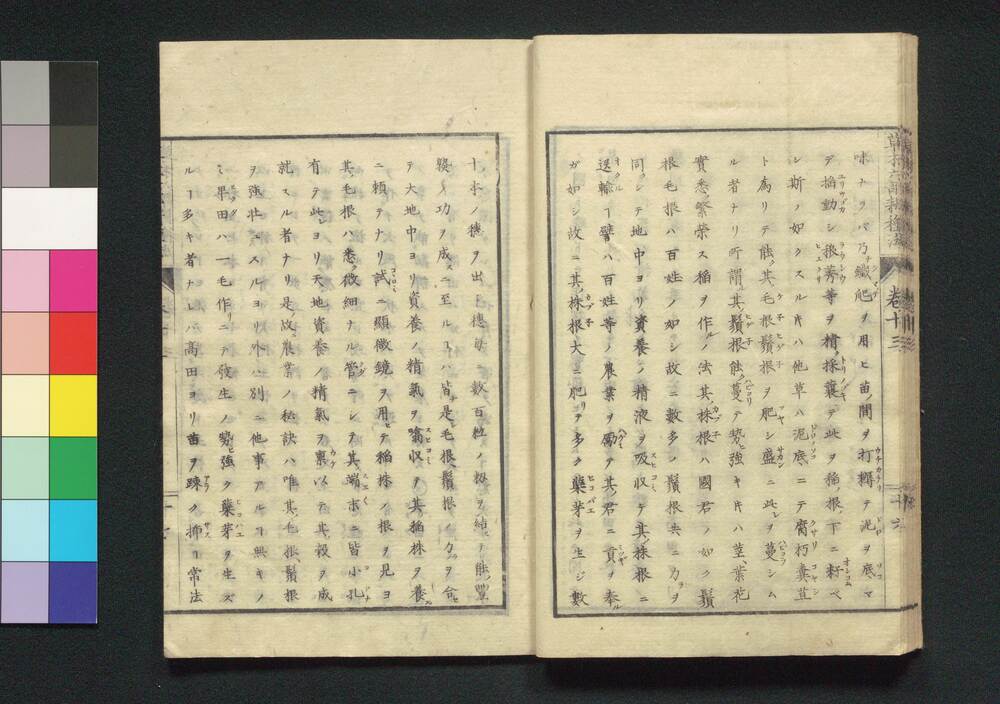 味ナラバ乃鐵耙ヲ用ヒ苗ノ間ヲ打耨テ泥ヲ底マ
デ搖動シ稂莠等ヲ精ク採襄テ此ヲ稲根ノ下ニ籽ベ
シ斯ノ如クスル片ハ他草ハ泥底ニテ腐朽糞苴
ト爲リテ能ク其毛根鬚根ヲ肥シ盛ニ此レヲ蔓シム
ル者ナリ所謂ル其鬚根能蔓テ勢ヒ強キ片ハ莖葉花
實悉ク繁榮ス稲ヲ作ルノ法其株根ハ國君ノ如ク鬚
根毛根ハ百姓ノ如シ故ニ數多ノ鬚根共ニ力ヲ
同シテ地中ヨリ資養ノ精液ヲ吸収テ其株根ニ
送輸ーヿ譬ハ百姓等ノ農業ヲ勵テ其君ニ貢ヲ奉ル
ガ如シ故ニ其株根大ニ肥リテ多ク蘖芽ヲ生ジ數
十本ノ穗ヲ出シ穗毎ニ數百粒ノ籾ヲ結ビテ能豐
穣ノ功ヲ成スニ至ルヿハ皆ナ是レ毛根鬚根ノ力ヲ合セ
テ大地中ヨリ資養ノ精氣ヲ噏収テ其稲株ヲ養フ
ニ頼テナリ試ニ顯微鏡ヲ用ヒテ稲株ノ根ヲ見ヨ
其毛根ハ悉ク微細ナル管ニシテ其端末ニ皆小孔
有テ此レヨリ天地資養ノ精氣ヲ禀以テ其穀ヲ成
就スル者ナリ是故農業ノ秘訣ハ唯其毛根鬚根
ヲ強壮ニスルヨリ外ハ別ニ他事アルヿ無キノ
ミ早田ハ一毛作リニテ發生ノ勢ヒ強ク蘖芽ヲ生ズ
ルヿ多キ者ナレバ高田ヨリ苗ヲ踈ク挿ヿ常法
卷十三